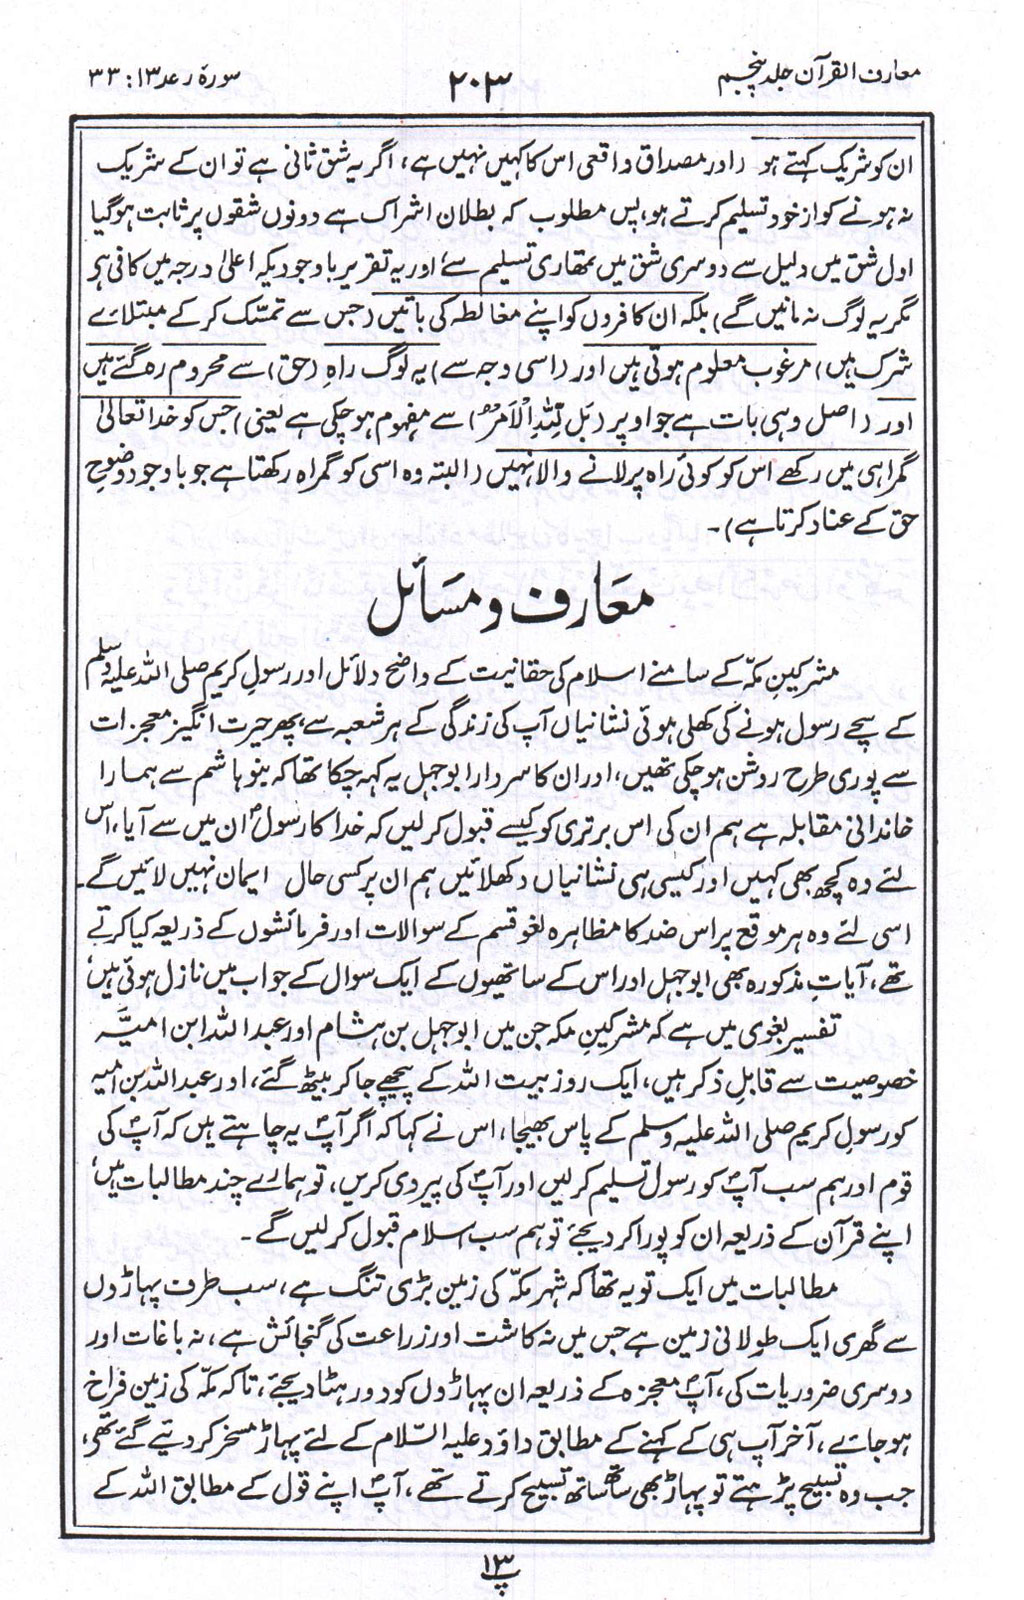 معارف القرآن جلد پنجم
۲۰۳
سورۂ رعد ۱۳ : ۳۳
ان کو شریک کہتے ہو (اور مصداق واقعی اس کا کہیں نہیں ہے، اگر یہ شق ثانی ہے تو ان کے شریک
نہ ہونے کو از خود تسلیم کرتے ہو، پس مطلوب کہ بطلان اشراک ہے دونوں شقوں پر ثابت ہو گیا
اول شق میں دلیل سے دوسری شق میں تمھاری تسلیم سے، اور یہ تقریر باوجودیکہ اعلیٰ درجہ میں کافی ہو
مگر یہ لوگ نہ مانیں گے) بلکہ ان کافروں کو اپنے مغالطہ کی باتیں (جس سے تمسّک کر کے مبتلائے
شرک ہیں) مرغوب معلوم ہوتی ہیں اور (اسی وجہ سے) یہ لوگ راہِ (حق) سے محروم رہ گئے ہیں
اور (اصل وہی بات ہے جو اوپر (بَلْ لِّلّٰہِ الْاَمْرُ) سے مفہوم ہو چکی ہے یعنی) جس کو خدا تعالیٰ
گمراہی میں رکھے اس کو کوئی راہ پر لانے والا نہیں (البتہ وہ اسی کو گمراہ رکھتا ہے جو باوجود وضوحِ
حق کے عناد کرتا ہے)۔
معارف و مسائل
مشرکینِ مکّہ کے سامنے اسلام کی حقانیت کے واضح دلائل اور رسولِ کریم صلی اللہ علیہ وسلم
کے سچے رسول ہونے کی کھلی ہوئی نشانیاں آپ کی زندگی کے ہر شعبہ سے، پھر حیرت انگیز معجزات
سے پوری طرح روشن ہو چکی تھیں، اور ان کا سردار ابو جہل یہ کہہ چکا تھا کہ بنو ہاشم سے ہمارا
خاندانی مقابلہ ہے ہم ان کی اس برتری کو کیسے قبول کر لیں کہ خدا کا رسول ان میں سے آیا، اس
لئے وہ کچھ بھی کہیں اور کیسی ہی نشانیاں دکھلائیں ہم ان پر کسی حال ایمان نہیں لائیں گے۔
اسی لئے وہ ہر موقع پر اس ضد کا مظاہرہ لغو قسم کے سوالات اور فرمائشوں کے ذریعہ کیا کرتے
تھے، آیاتِ مذکورہ بھی ابو جہل اور اس کے ساتھیوں کے ایک سوال کے جواب میں نازل ہوئی ہیں،
تفسیر بغوی میں ہے کہ مشرکینِ مکہ جن میں ابو جہل بن ہشام اور عبد اللہ ابن امیّہ
خصوصیت سے قابلِ ذکر ہیں، ایک روز بیت اللہ کے پیچھے جا کر بیٹھ گئے، اور عبد اللہ بن امیہ
کو رسولِ کریم صلی اللہ علیہ وسلم کے پاس بھیجا، اس نے کہا کہ اگر آپ یہ چاہتے ہیں کہ آپ کی
قوم اور ہم سب آپ کو رسول تسلیم کر لیں اور آپ کی پیروی کریں، تو ہمارے چند مطالبات ہیں،
اپنے قرآن کے ذریعہ ان کو پورا کر دیجئے تو ہم سب اسلام قبول کر لیں گے۔
مطالبات میں ایک تو یہ تھا کہ شہر مکّہ کی زمین بڑی تنگ ہے، سب طرف پہاڑوں
سے گھری ایک طولانی زمین ہے جس میں نہ کاشت اور زراعت کی گنجائش ہے، نہ باغات اور
دوسری ضروریات کی، آپ معجزہ کے ذریعہ ان پہاڑوں کو دور ہٹا دیجئے، تاکہ مکّہ کی زمین فراخ
ہو جائے، آخر آپ ہی کے کہنے کے مطابق داؤد علیہ السّلام کے لئے پہاڑ مسخر کر دیئے گئے تھے،
جب وہ تسبیح پڑھتے تو پہاڑ بھی ساتھ ساتھ تسبیح کرتے تھے، آپ اپنے قول کے مطابق اللہ کے
پ ۱۳